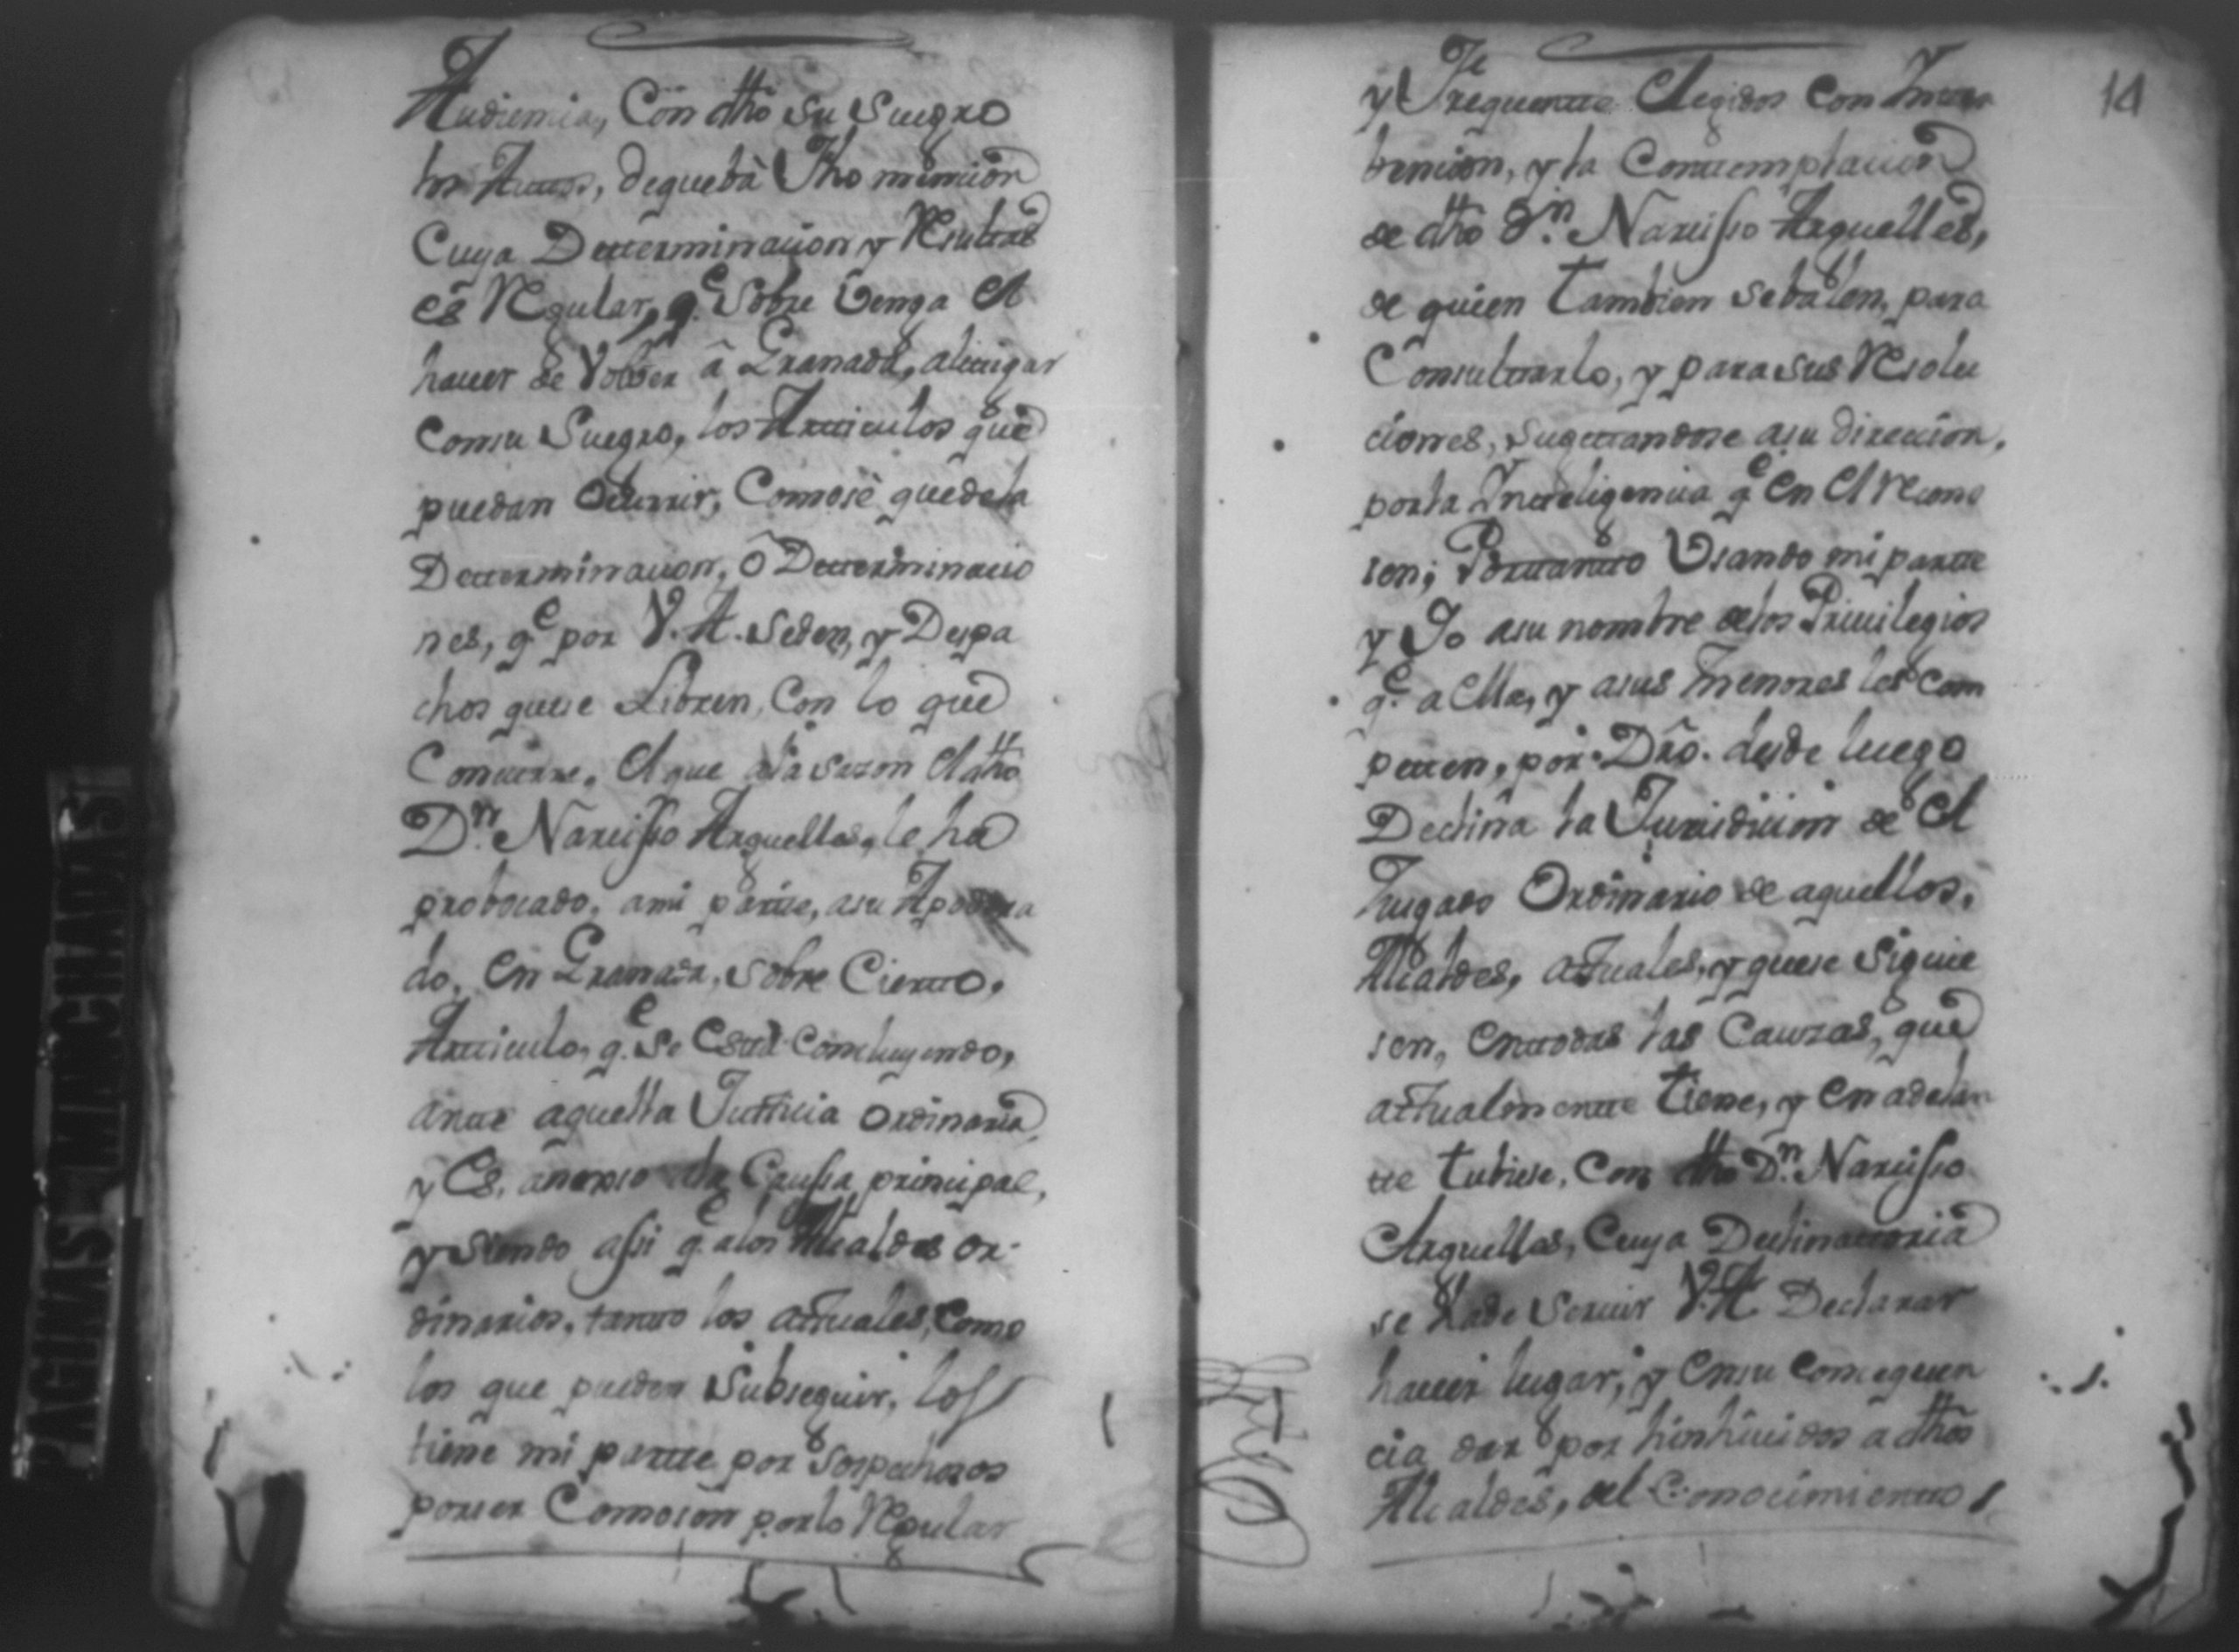 Audiencia, Con dho su Suegro
los Auttos, de que bà fho mencion
Cuya Detterminacion y Resultas
es Regular, q.e sobre venga el
hauer de Volber â Granada, alitigar
Consu Suegro, los Artticulos que
puedan Ocurrir, Comosè quedela
Detterminacion, ô Detterminacio
nes, q.e por V. A. seden, y Despa
chos quese Libren, Con lo que
Concurre, el que ala sazon el dho
D.n Narcisso Arguelles, le ha
probocado, ami partte, asu Apodera
do, en Granada, sobre Cierto,
Artticulo, q.e se Esttá Concluyendo,
antte aquella Justticia ordinaria,
y es, anexso ala Caussa principal,
y siendo assi q.e alos Alcaldes or
dinarios, tantto los actuales, como
los que pueden subseguir, los
tiene mi partte por sospechosos
porser Comoson porlo Regular
14
y Frequentte elegidos con Intter
bencion, y la Conttemplacion
de dho D.n Narcisso Arguelles,
de quien tambien sebalen, para
Consulttarlo, y para sus Resolu
ciones, sugettandose asu direccion,
porla Intteligencia q.e en el recono
sen; Portantto Usando mi partte
y Yo asu nombre delos Privilegios
q.e a ella, y asus menores les com
petten, por Dro. desde luego
Declina la Jurisdicion de el
Jusgado Ordinario de aquellos,
Alcaldes, actuales, y quese siguie
sen, enttodas las Cauzas, que
actualmentte tiene, y en adelan
tte tubiese, Con dho D.n Narcisso
Arguelles, Cuya Declinattoria
se hade Seruir V. A. Declarar
hauer lugar, y ensu consequen
cia dar por hinhiuidos a dhos
Alcaldes, del Conocimientto
PAGINAS MANCHADAS